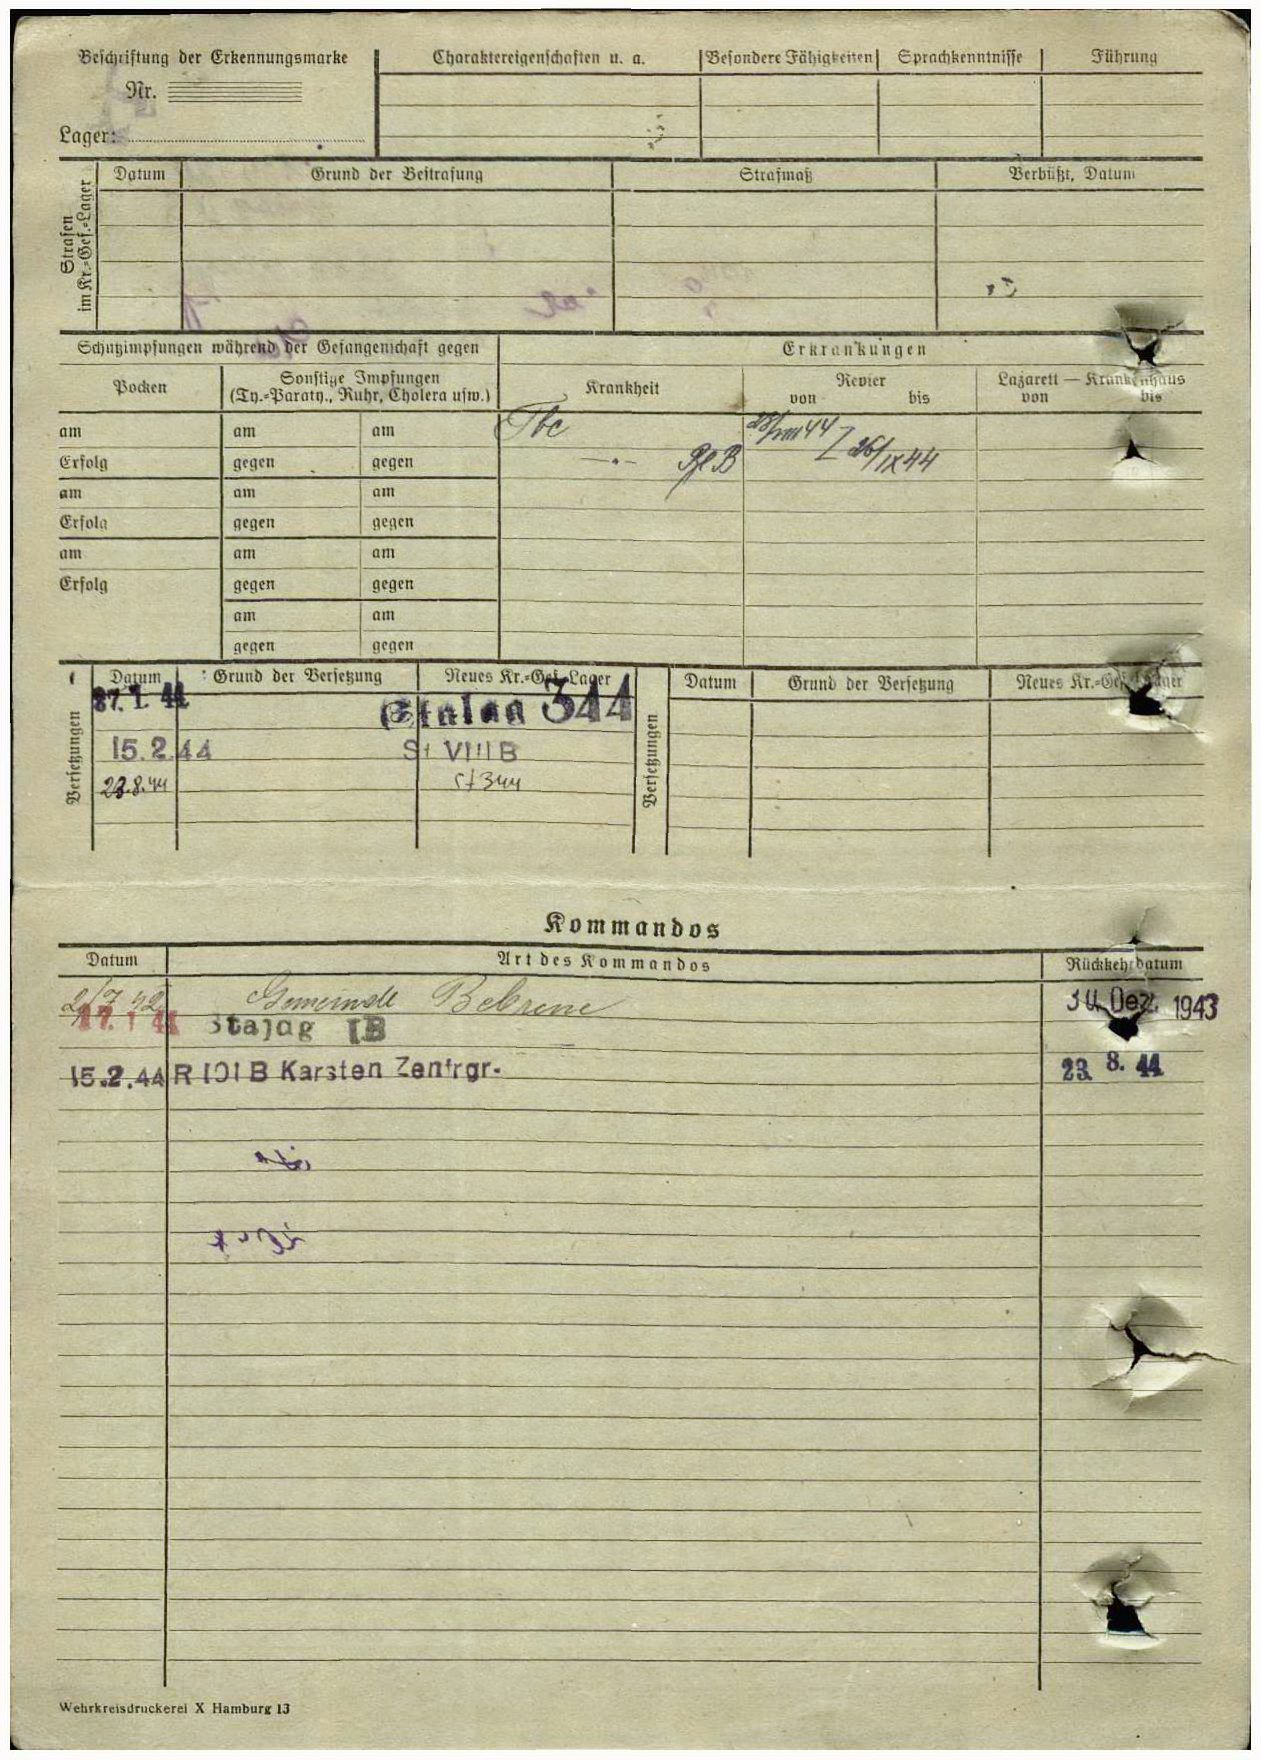 Beschriftung der Erkennungsmarke
Nr.
Lager:
Charaktereigenschaften u. a.
Besondere Fähigkeiten
Sprachkenntnisse
Führung
Strafen im Kr.=Gef.=Lager
Datum
Grund der Bestrafung
Strafmaß
Verbüßt, Datum
Schutzimpfungen während der Gefangenschaft gegen
Erkrankungen
Pocken
Sonstige Impfungen
(Ty.=Paraty., Ruhr, Cholera usw.)
Krankheit
Revier
von bis
Lazarett — Krankenhaus
von bis
am am am Tbc 28/VIII 44
Erfolg gegen gegen 26/IX 44
am am am
Erfolg gegen gegen
am am am
Erfolg gegen gegen
am am
gegen gegen
Versetzungen
Datum Grund der Versetzung Neues Kr.=Gef.=Lager
Stalag 344
15.2.44 St VIII B
23.8.44 St 344
Versetzungen
Datum Grund der Versetzung Neues Kr.=Gef.=Lager
Kommandos
Datum Art des Kommandos Rückkehrdatum
2/7 42 Gemeinde Bebrene Dez. 1943
Stalag IB
15.2.44 R 101 B Karsten Zentrgr. 23. 8. 44
Wehrkreisdruckerei X Hamburg 13